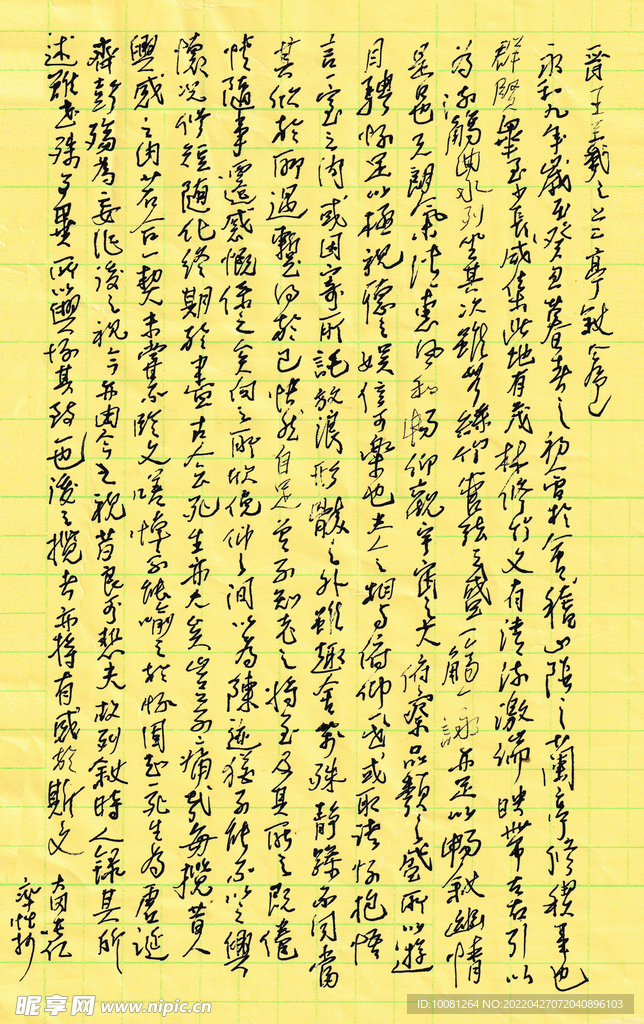 王羲之兰亭叙
永和九年歲在癸丑暮春之初會於會稽山陰之蘭亭修禊事也
群賢畢至少長咸集此地有茂林修竹又有清流激湍映帶左右引以
為流觴曲水列坐其次雖無絲竹管弦之盛一觴一詠亦足以暢叙幽情
是日也天朗氣清惠風和暢仰觀宇宙之大俯察品類之盛所以遊
目騁懷足以極視聽之娛信可樂也夫人之相與俯仰一世或取諸懷抱悟
言一室之內或因寄所託放浪形骸之外雖趣舍萬殊靜躁不同當
其欣於所遇暫得於己快然自足曾不知老之將至及其所之既倦
情隨事遷感慨係之矣向之所欣俛仰之間以為陳迹猶不能不以之興
懷況修短隨化終期於盡古人云死生亦大矣豈不痛哉每攬昔人
興感之由若合一契未嘗不臨文嗟悼不能喻之於懷固知一死生為虛誕
齊彭殤為妄作後之視今亦由今之視昔良可悲夫故列叙時人錄其所
述雖世殊事異所以興懷其致一也後之攬者亦將有感於斯文
率性抄
昵享网 www.nipic.cn
ID:10081264 NO:20220427072040896103